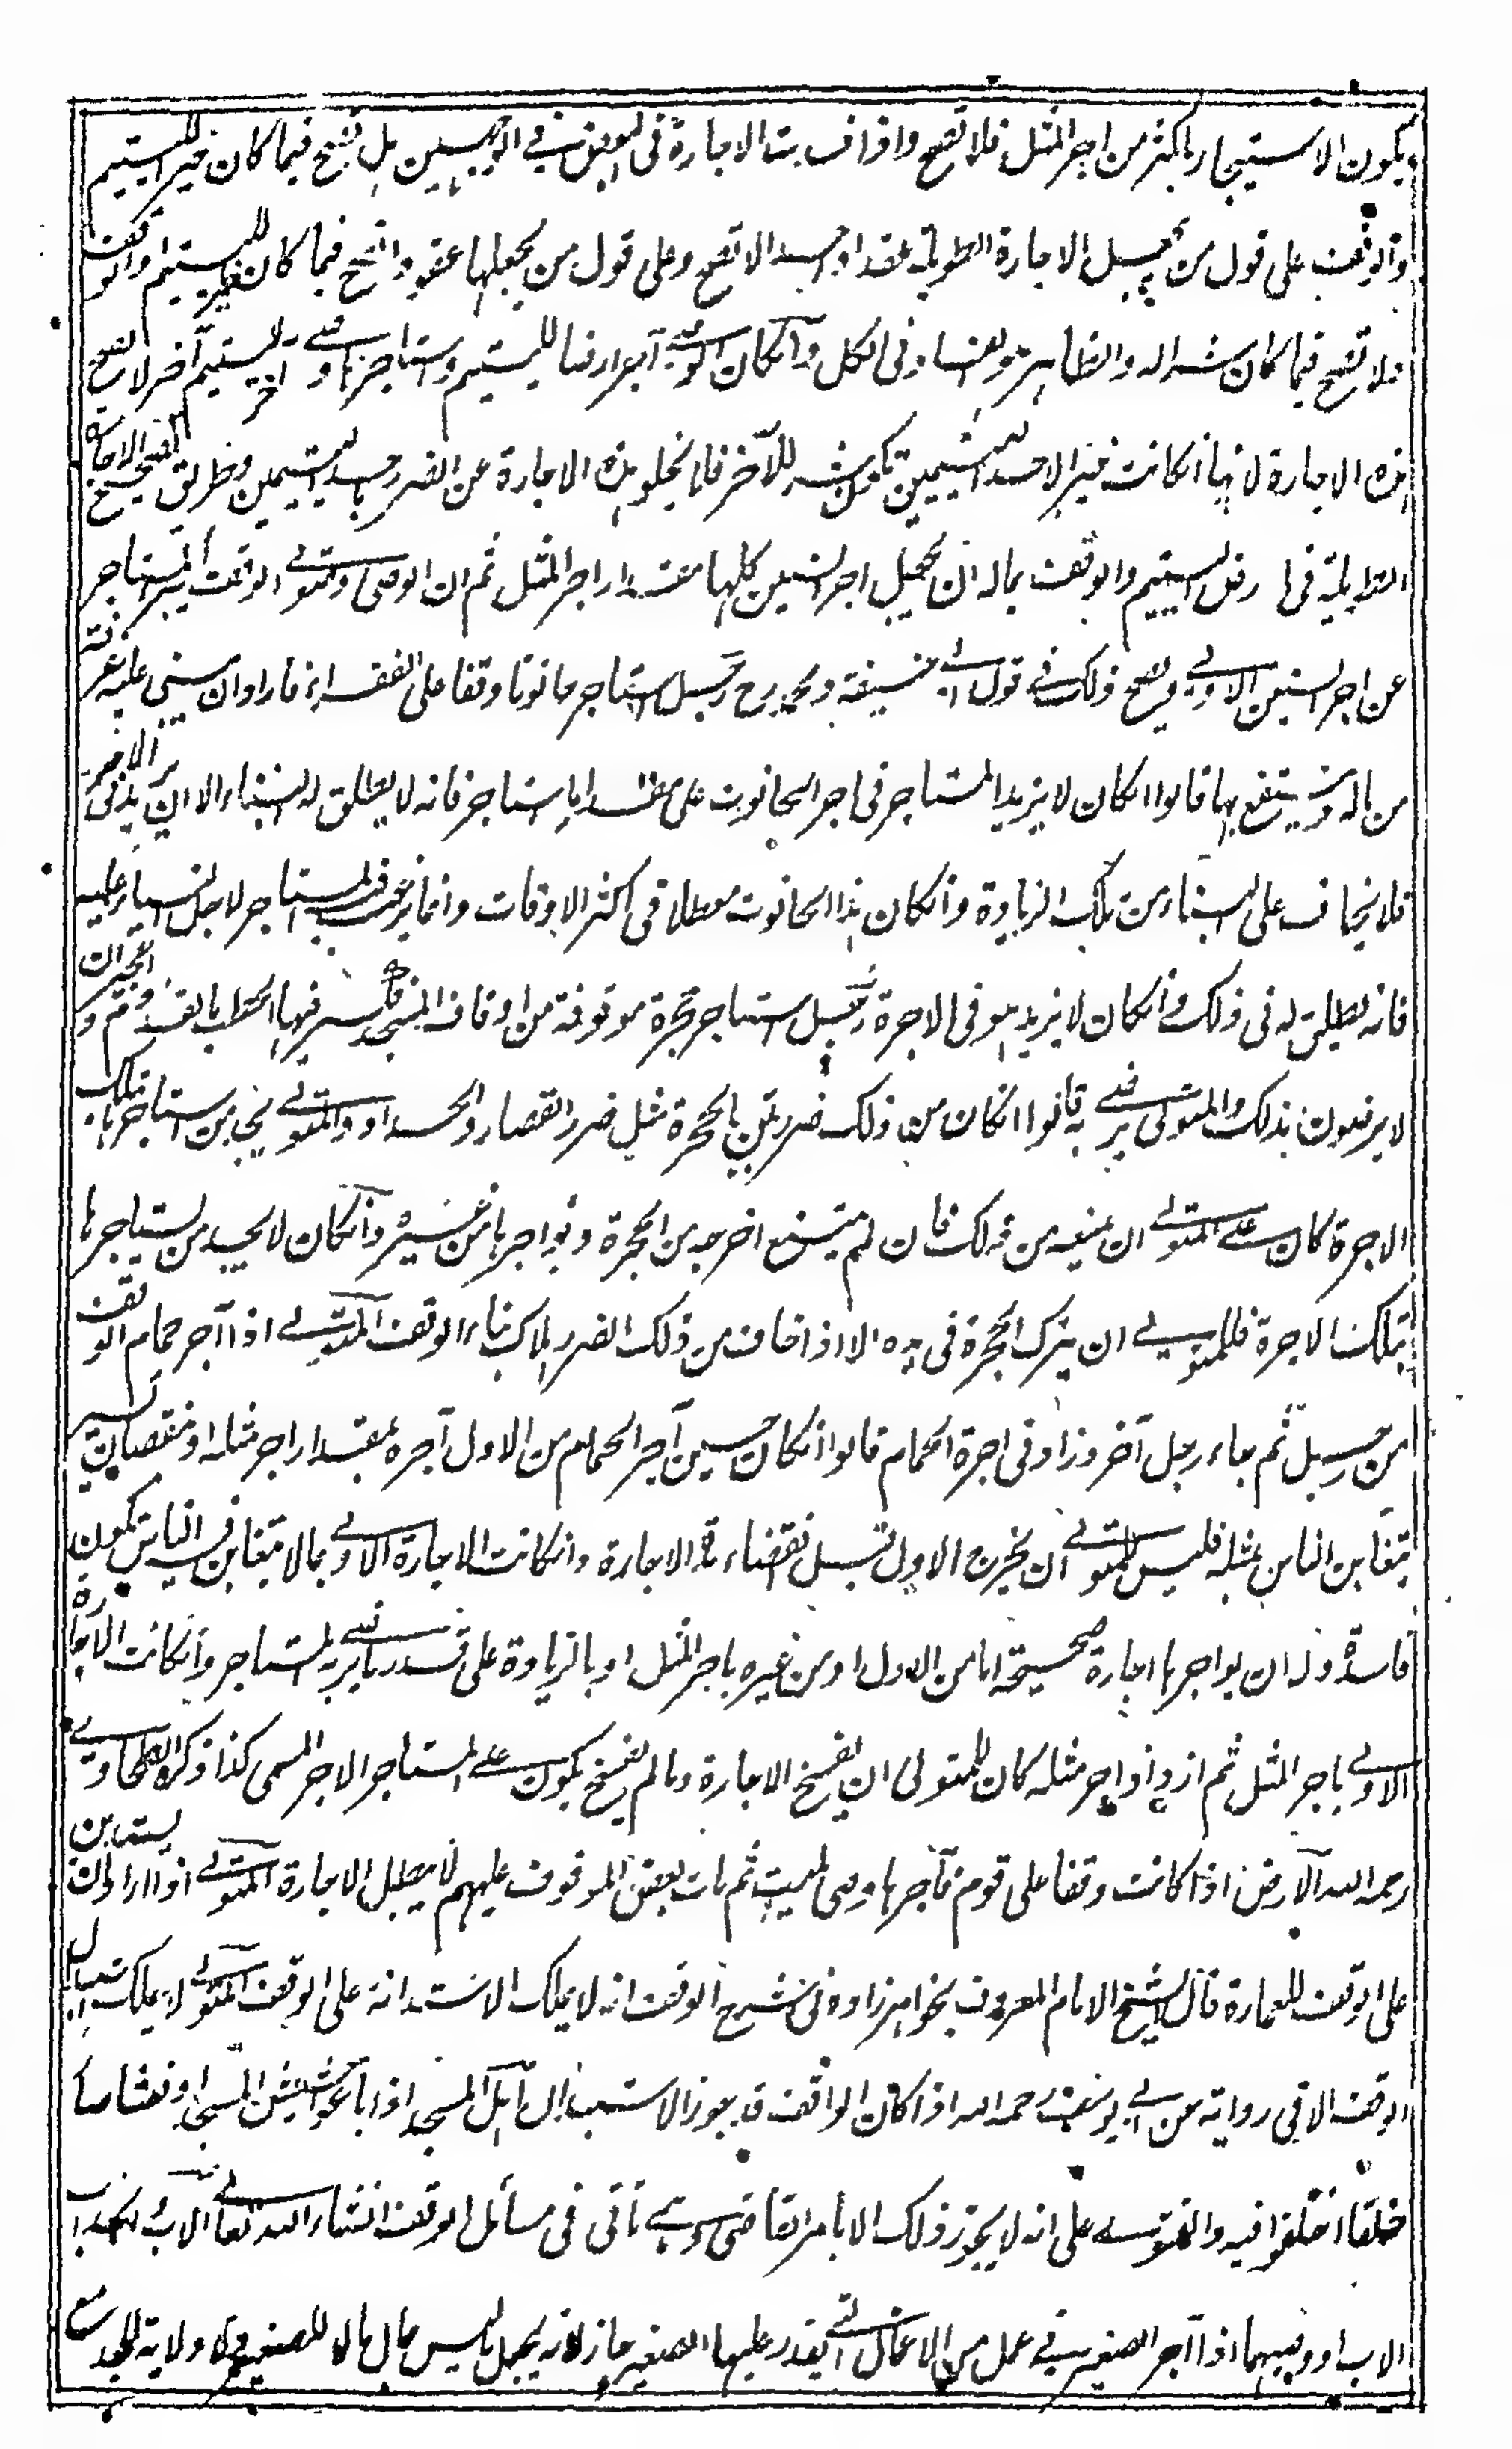 ويكون الاستيجار باكثر من اجر المثل فلا تصح واذا فسدت الاجارة في البعض في الوجهين بل تصح فيما كان خير اليتيم
والوقف على قول من يجعل الاجارة الطويلة عقدا واحدا لا تصح وعلى قول من يجعلها عقودا تصح فيما كان خيرا لليتيم والوقف
فلا تصح فيما كان شرا له والظاهر هو الفساد في الكل وان كان الوصي آجر ارضا لليتيم واستاجرها وصي آخر ليتيم آخر لا تصح
هذه الاجارة لانها ان كانت خيرا لاحد اليتيمين تكون شرا للآخر فلا يخلو هذه الاجارة عن الضرر باحد اليتيمين وطريق تصحيح الاجارة
الطويلة في ارض اليتيم والوقف بماله ان يجعل اجر السنين كلها مقدار اجر المثل ثم ان الوصي ومتولي الوقف يبرئ المستاجر
عن اجر السنين الاولى ويصح ذلك في قول ابي حنيفة ومحمد رح رجل استاجر حانوتا وقفا على الفقراء فاراد ان يبني عليه غرفة
من ماله وينتفع بها قالوا ان كان لا يزيد المستاجر في اجر الحانوت على مقدار ما استاجر فانه لا يطلق له البناء الا ان يزيد في الاجر
فلا يخاف على البناء من تلك الزيادة وان كان هذا الحانوت معطلا في اكثر الاوقات وانما يرغب المستاجر لاجل البناء عليه
فانه يطلق له في ذلك وان كان لا يزيد هو في الاجرة رجل استاجر حجرة موقوفة من اوقاف المسجد فكسر فيها الحطب بالقدوم والجيران
لا يرضون بذلك والمتولي يرضى به قالوا ان كان من ذلك ضرر بين بالحجرة مثل ضرر القصار والحداد والمتولي يجد من يستاجرها بتلك
الاجرة كان على المتولي ان يمنعه من ذلك فان لم يمتنع اخرجه من الحجرة ويؤاجرها من غيره وان كان لا يجد من يستاجرها
بتلك الاجرة فللمتولي ان يترك الحجرة في يده الا اذا خاف من ذلك الضرر هلاك بناء الوقف المتولي اذا آجر حمام الوقف
من رجل ثم جاء رجل آخر وزاد في اجرة الحمام قالوا ان كان حين آجر الحمام من الاول آجره بمقدار اجر مثله او بنقصان يسير
يتغابن الناس بمثله فليس للمتولي ان يخرج الاول قبل انقضاء مدة الاجارة وان كانت الاجارة الاولى بما لا يتغابن فيه الناس تكون
فاسدة وله ان يواجرها اجارة صحيحة اما من الاول او من غيره باجر المثل او بالزيادة على قدر ما يرضى به المستاجر وان كانت الاجارة
الاولى باجر المثل ثم ازداد اجر مثله كان للمتولي ان يفسخ الاجارة وما لم يفسخ يكون على المستاجر الاجر المسمى كذا ذكره الطحاوي
رحمه الله الارض اذا كانت وقفا على قوم فآجرها وصي الميت ثم مات بعض الموقوف عليهم لا يبطل الاجارة المتولي اذا اراد ان يستدين
على الوقف للعمارة قال الشيخ الامام المعروف بخواهرزاده في شرح الوقف انه لا يملك الاستدانة على الوقف المتولي لا يملك استبدال
الوقف الا في رواية عن ابي يوسف رحمه الله اذا كان الواقف قد جوز الاستبدال اهل المسجد اذا باعوا حشيش المسجد او نعشا صار
خلقا اختلفوا فيه والفتوى على انه لا يجوز ذلك الا بامر القاضي وهي تاتي في مسائل الوقف انشاء الله تعالى الاب والجد اب
الاب او وصيهما اذا آجر الصغير في عمل من الاعمال التي يقدر عليها الصغير جاز لانه يجعل ما ليس بمال مالا للصغير ولا ولاية للجد مع